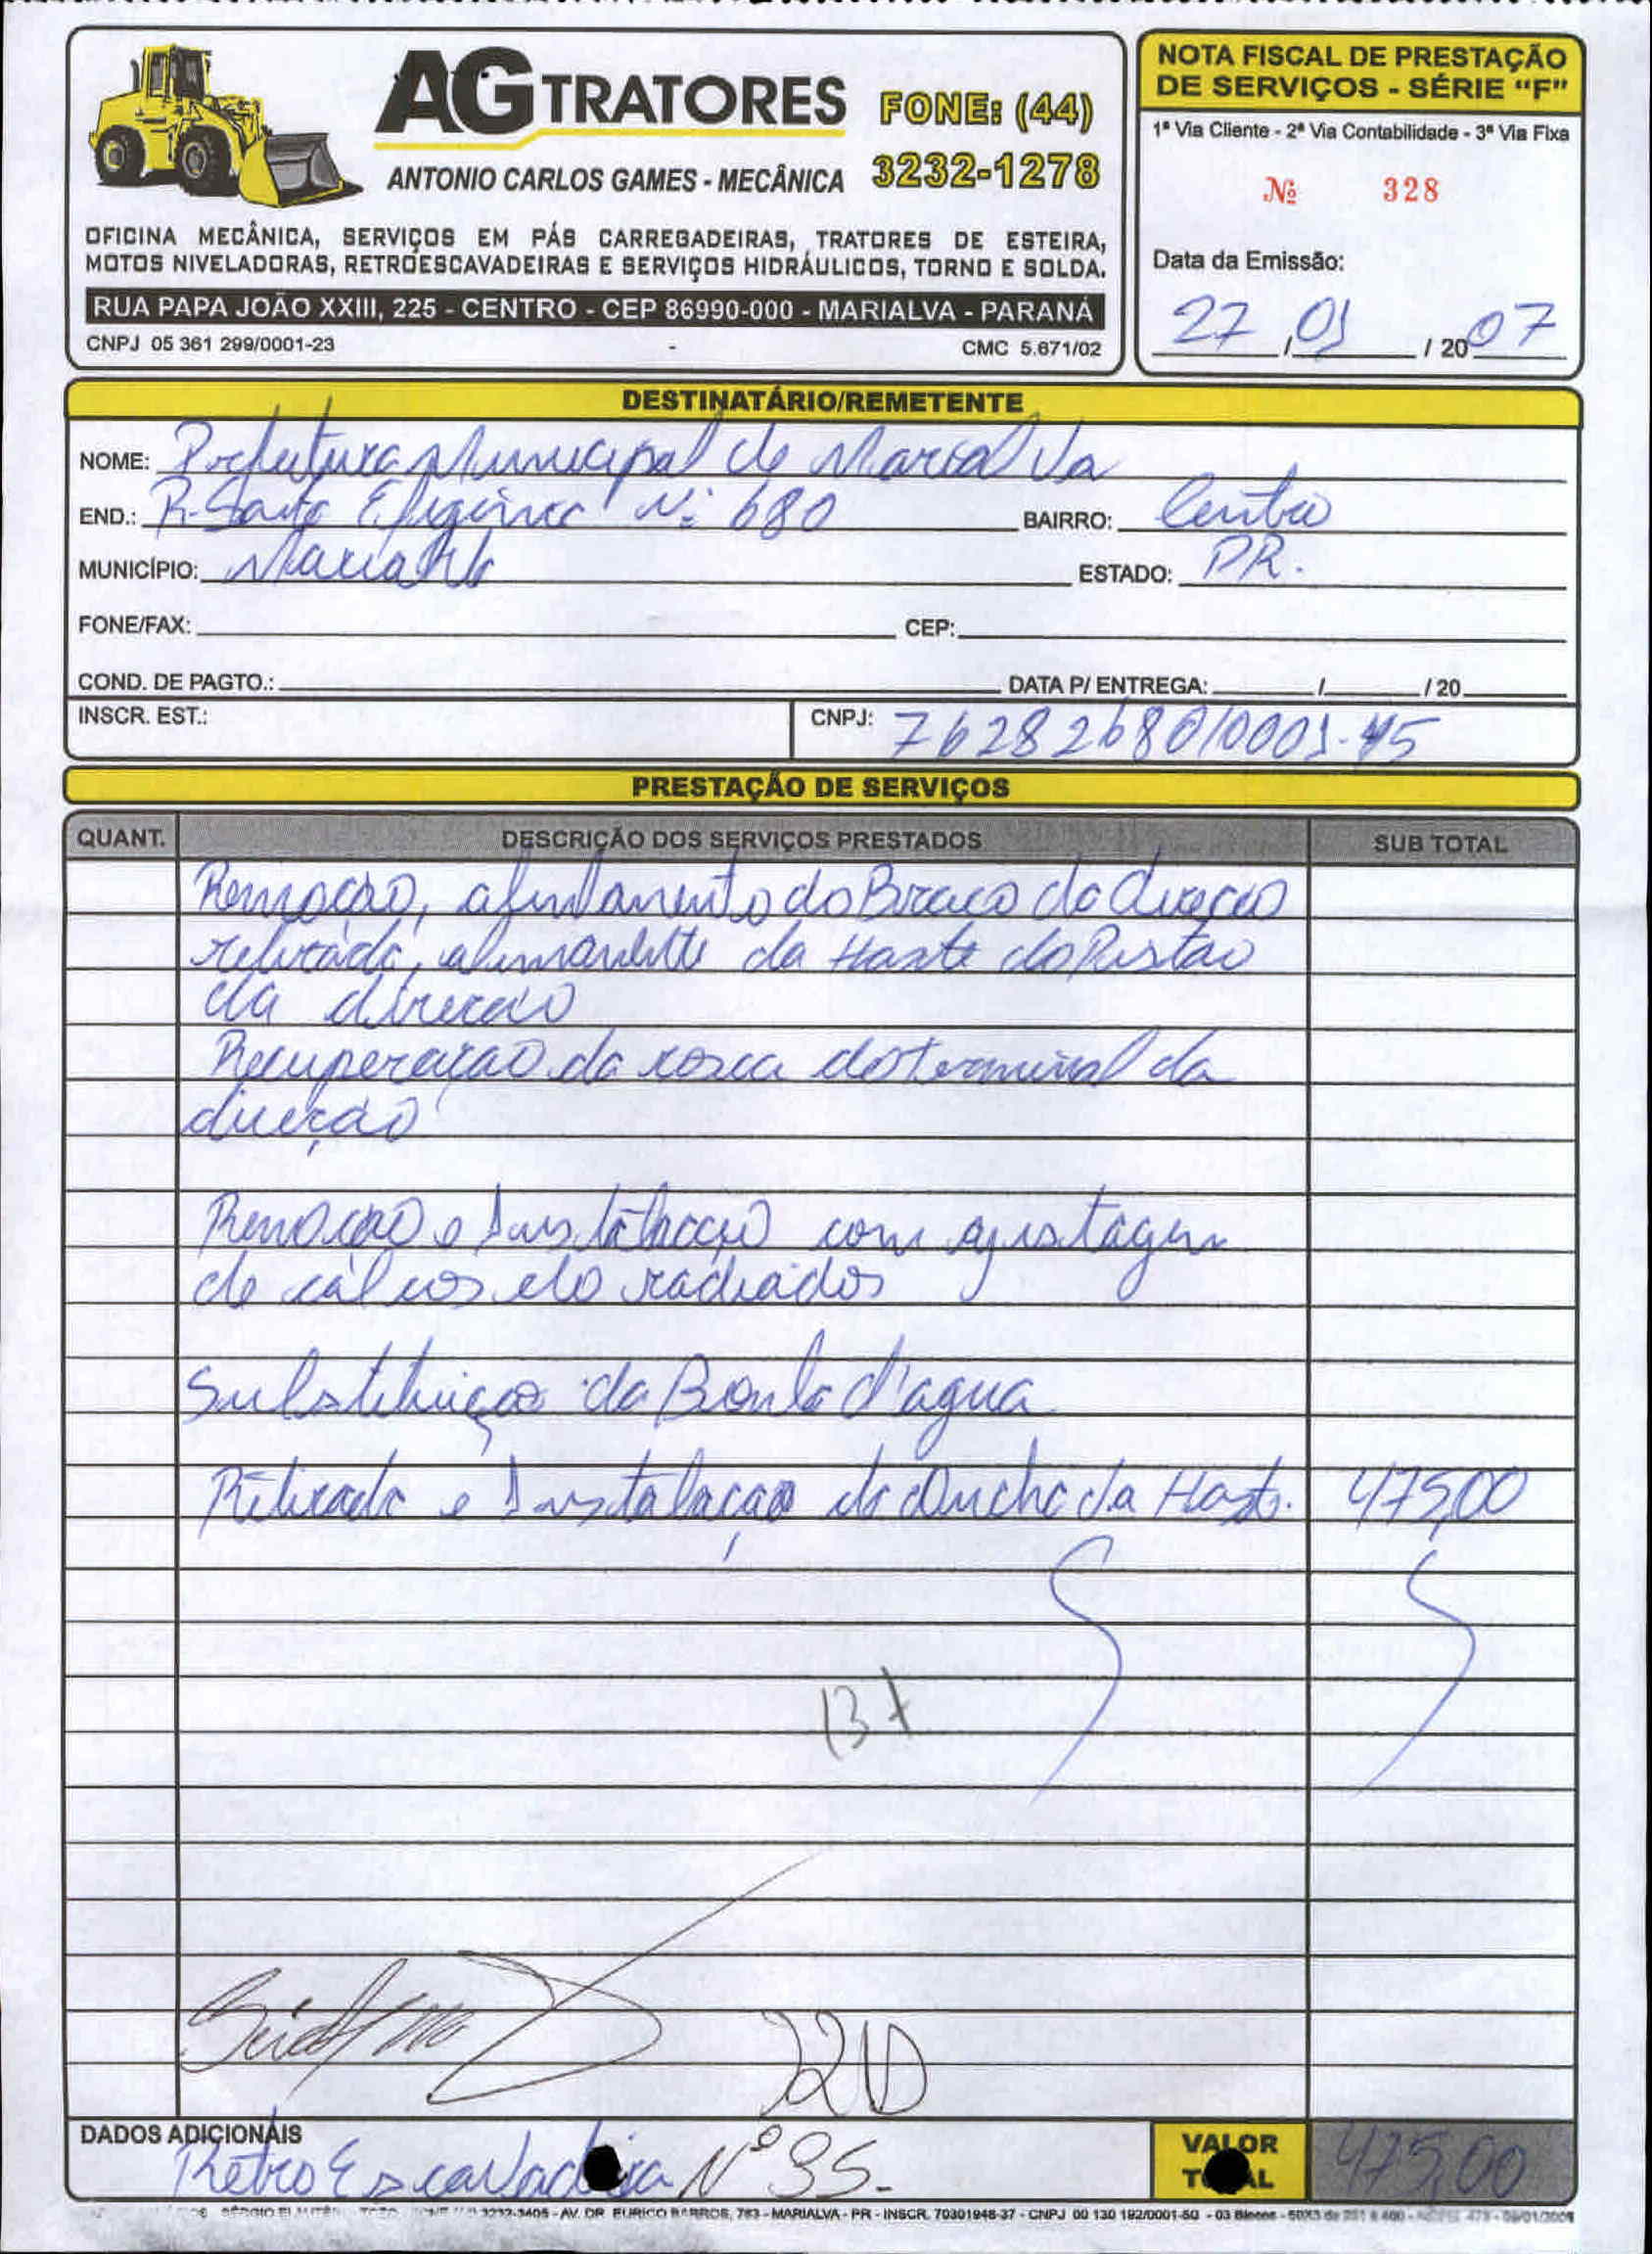 AG TRATORES
FONE: (44)
3232-1278
ANTONIO CARLOS GAMES - MECÂNICA
OFICINA MECÂNICA, SERVIÇOS EM PÁS CARREGADEIRAS, TRATORES DE ESTEIRA,
MOTOS NIVELADORAS, RETROESCAVADEIRAS E SERVIÇOS HIDRÁULICOS, TORNO E SOLDA.
RUA PAPA JOÃO XXIII, 225 - CENTRO - CEP 86990-000 - MARIALVA - PARANÁ
CNPJ 05 361 299/0001-23 CMC 5.671/02
NOTA FISCAL DE PRESTAÇÃO
DE SERVIÇOS - SÉRIE “F”
1ª Via Cliente - 2ª Via Contabilidade - 3ª Via Fixa
Nº 328
Data da Emissão:
27 / 01 / 2007
DESTINATÁRIO/REMETENTE
NOME: Prefeitura Municipal de Marialva
END.: R. Santa Efigênia Nº 680 BAIRRO: Centro
MUNICÍPIO: Marialva ESTADO: PR.
FONE/FAX: CEP:
COND. DE PAGTO.: DATA P/ ENTREGA: / / 20
INSCR. EST.: CNPJ: 76282680/0001-45
PRESTAÇÃO DE SERVIÇOS
QUANT. DESCRIÇÃO DOS SERVIÇOS PRESTADOS SUB TOTAL
Remoção, do Braço da direção
retirada, da Haste do Pistão
da direção
Recuperação da rosca do terminal da
direção
Remoção e Instalação com ajustagem
de calços do radiador
Substituição da Bomba d'agua
Retirada e Instalação da Concha da Haste. 475,00
137
220
DADOS ADICIONAIS
Retro Escavadeira Nº 35.
VALOR
TOTAL 475,00
3232-3405 - AV. DR. EURICO BARROS, 783 - MARIALVA - PR - INSCR. 70301948-37 - CNPJ 00 130 192/0001-50 - 03 Blocos - 50X3